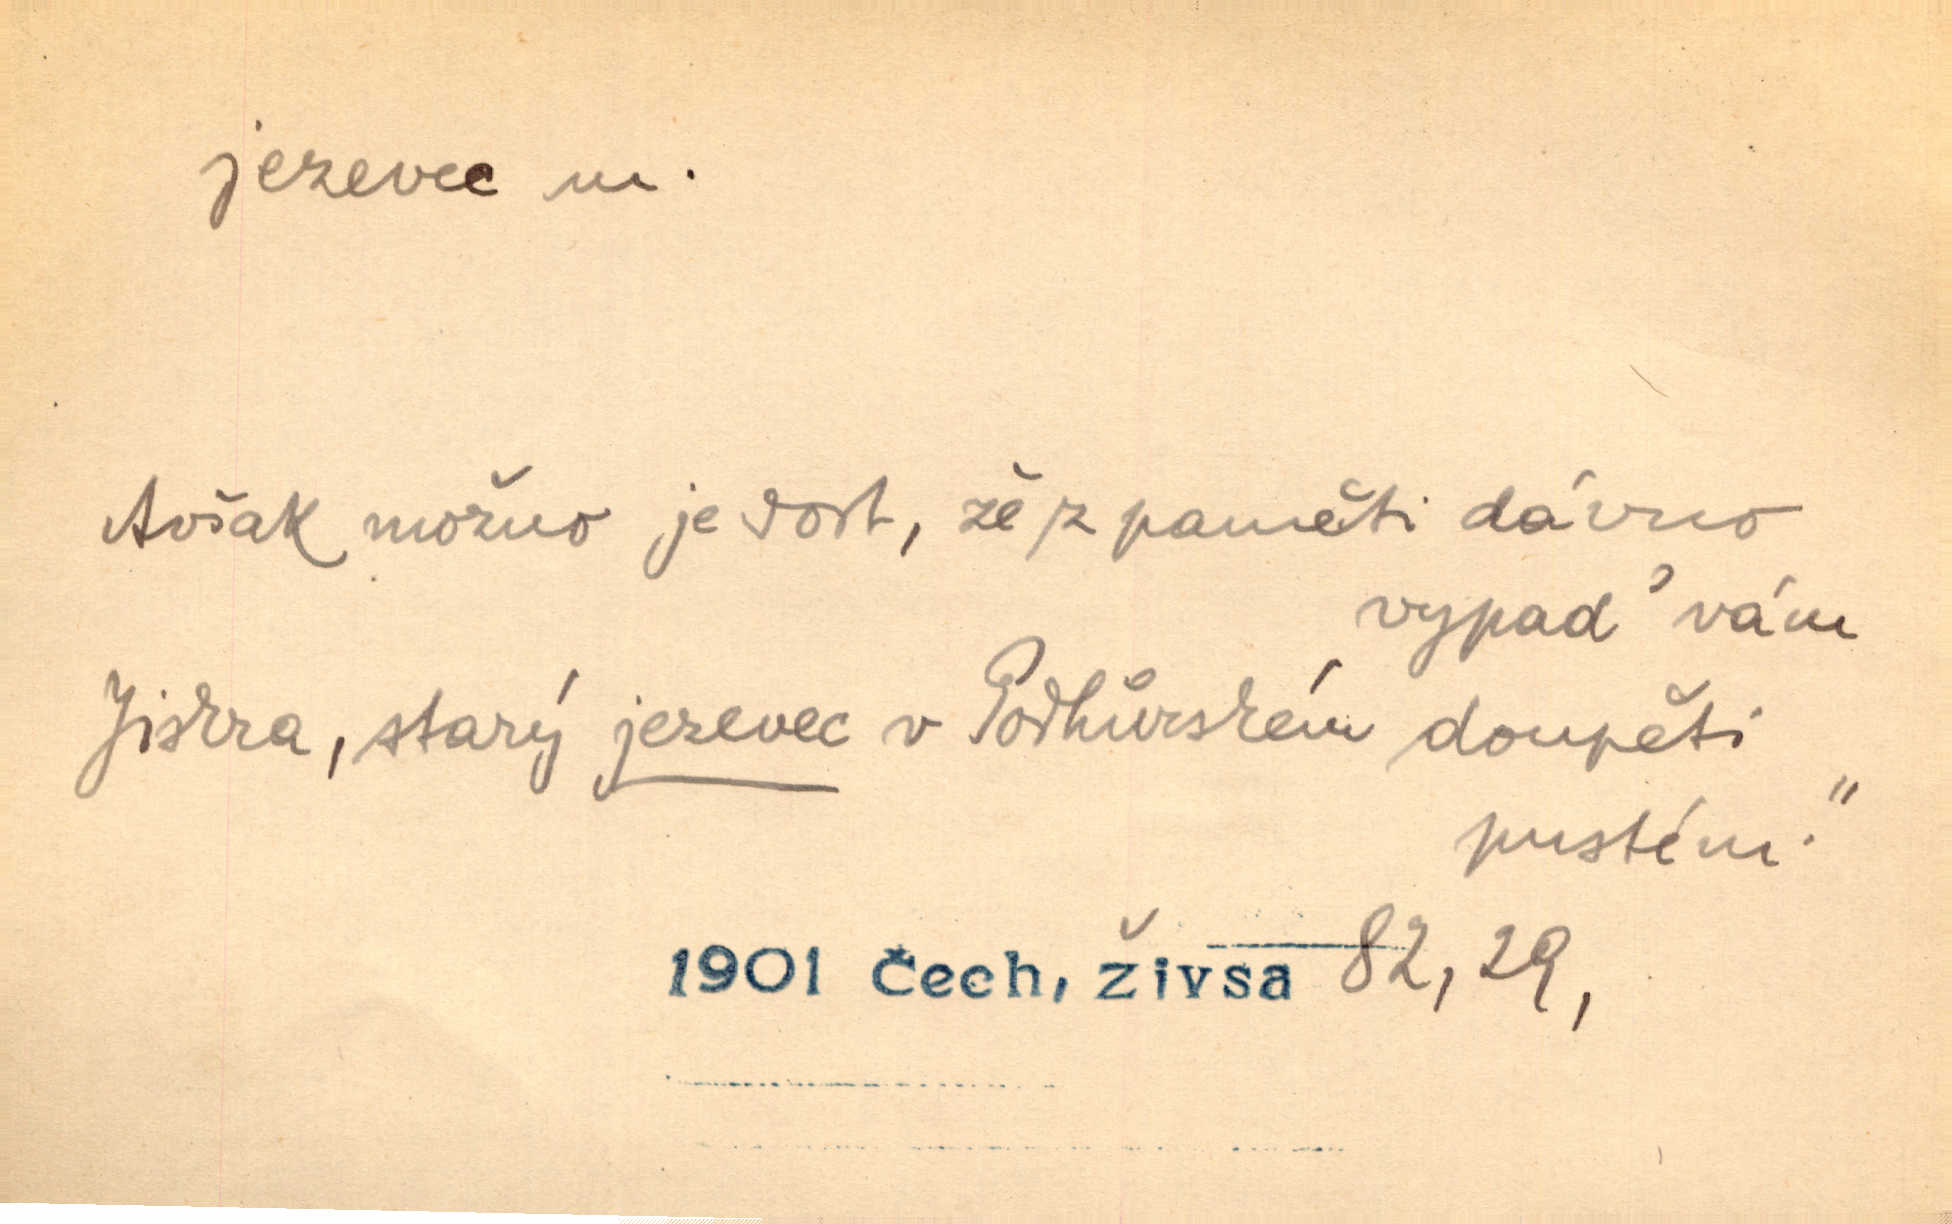 jezevec m.
Avšak možno je dost, že z paměti dávno
vypad' vám
Jiskra, starý jezevec v Podhůrském doupěti
pustém."
1901 Čech, Živsa 82, 29,